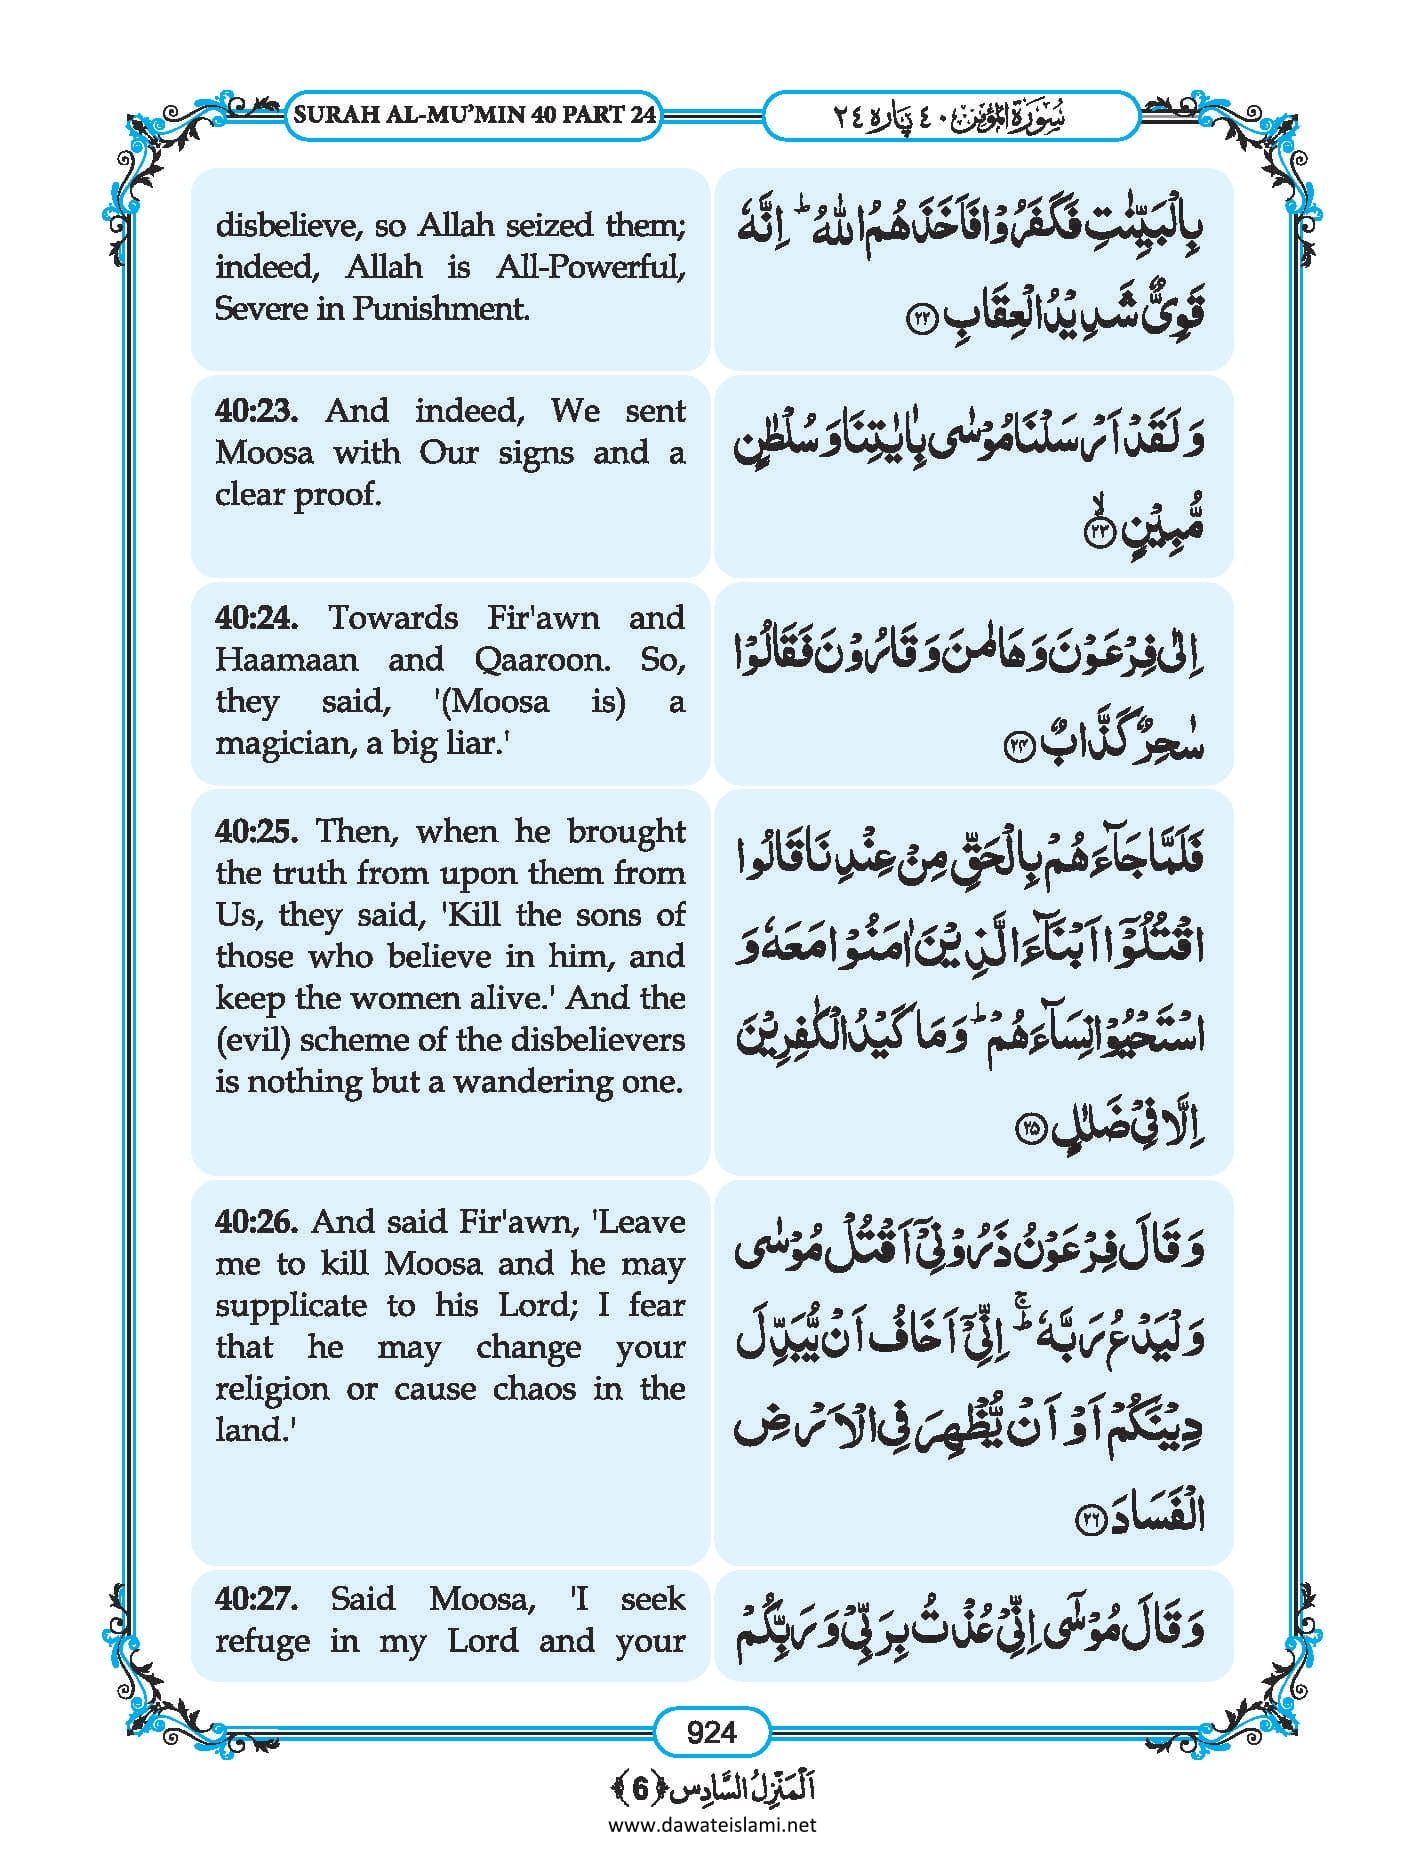 SURAH AL-MU’MIN 40 PART 24
سُوْرَةُ الْمُؤْمِن ٤٠ پَارَہ ٢٤
disbelieve, so Allah seized them;
indeed, Allah is All-Powerful,
Severe in Punishment.
بِالْبَيِّنٰتِ فَكَفَرُوْا فَاَخَذَهُمُ اللّٰهُ ؕ اِنَّهٗ
قَوِیٌّ شَدِیْدُ الْعِقَابِ ﴿۲۲﴾
40:23. And indeed, We sent
Moosa with Our signs and a
clear proof.
وَ لَقَدْ اَرْسَلْنَا مُوْسٰى بِاٰیٰتِنَا وَ سُلْطٰنٍ
مُّبِیْنٍ ۙ﴿۲۳﴾
40:24. Towards Fir'awn and
Haamaan and Qaaroon. So,
they said, '(Moosa is) a
magician, a big liar.'
اِلٰى فِرْعَوْنَ وَ هَامٰنَ وَ قَارُوْنَ فَقَالُوْا
سٰحِرٌ كَذَّابٌ ﴿۲۴﴾
40:25. Then, when he brought
the truth from upon them from
Us, they said, 'Kill the sons of
those who believe in him, and
keep the women alive.' And the
(evil) scheme of the disbelievers
is nothing but a wandering one.
فَلَمَّا جَآءَهُمْ بِالْحَقِّ مِنْ عِنْدِنَا قَالُوا
اقْتُلُوْۤا اَبْنَآءَ الَّذِیْنَ اٰمَنُوْا مَعَهٗ وَ
اسْتَحْیُوْا نِسَآءَهُمْ ؕ وَ مَا كَیْدُ الْكٰفِرِیْنَ
اِلَّا فِیْ ضَلٰلٍ ﴿۲۵﴾
40:26. And said Fir'awn, 'Leave
me to kill Moosa and he may
supplicate to his Lord; I fear
that he may change your
religion or cause chaos in the
land.'
وَ قَالَ فِرْعَوْنُ ذَرُوْنِیْۤ اَقْتُلْ مُوْسٰى
وَ لْیَدْعُ رَبَّهٗ ۚؕ اِنِّیْۤ اَخَافُ اَنْ یُّبَدِّلَ
دِیْنَكُمْ اَوْ اَنْ یُّظْهِرَ فِی الْاَرْضِ
الْفَسَادَ ﴿۲۶﴾
40:27. Said Moosa, 'I seek
refuge in my Lord and your
وَ قَالَ مُوْسٰۤى اِنِّیْ عُذْتُ بِرَبِّیْ وَ رَبِّكُمْ
924
اَلْمَنْزِلُ السَّادِس ﴿6﴾
www.dawateislami.net